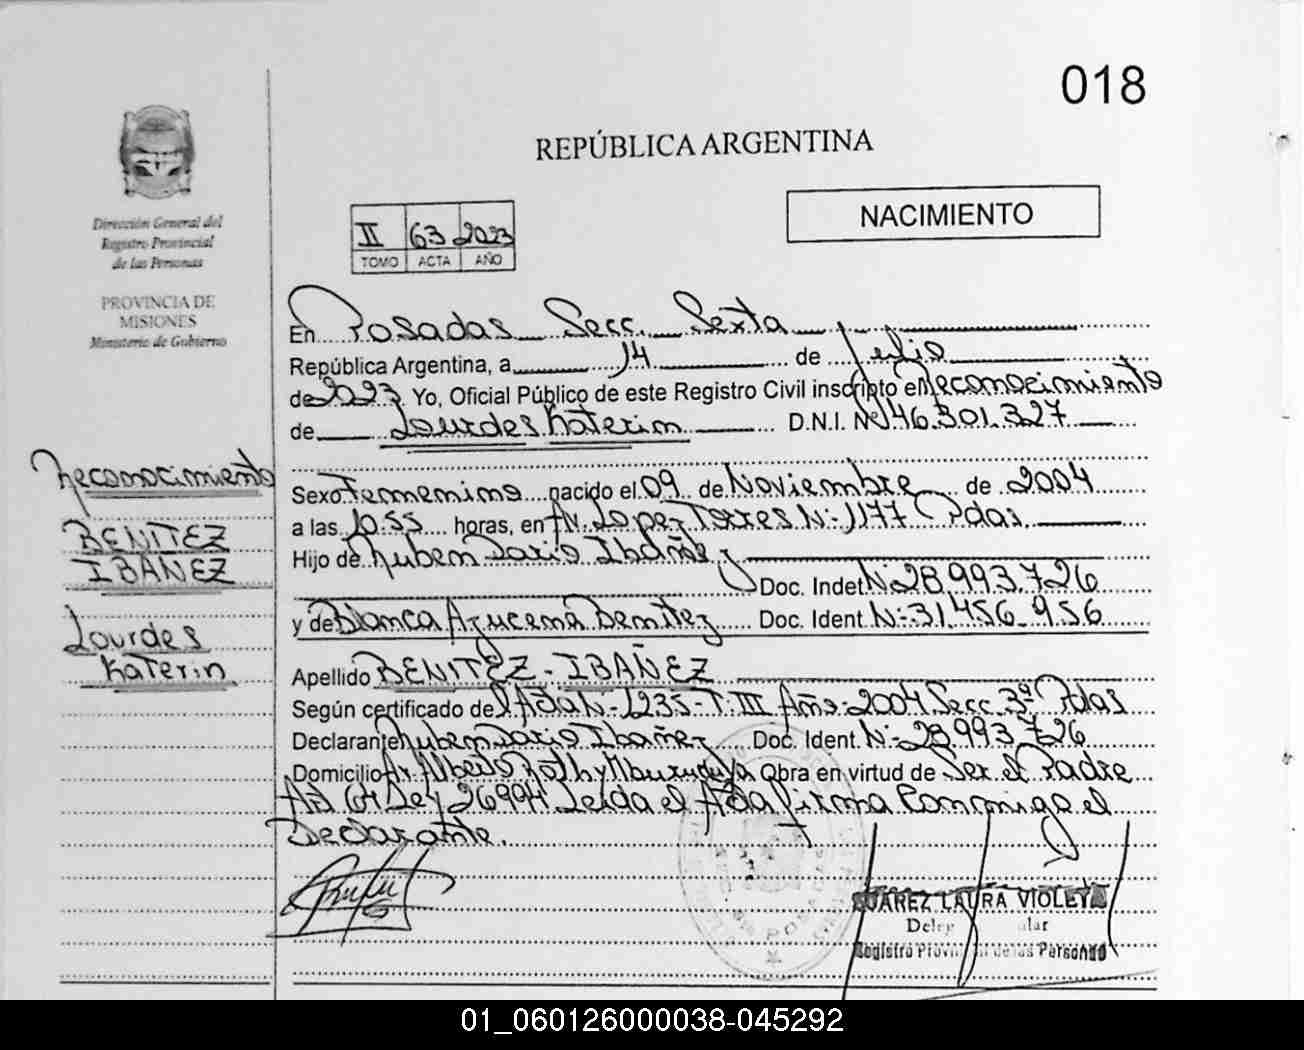 018
REPÚBLICA ARGENTINA
NACIMIENTO
Dirección General del
Registro Provincial
de las Personas
PROVINCIA DE
MISIONES
Ministerio de Gobierno
II 63 2023
TOMO ACTA AÑO
En Posadas Secc. Sexta
República Argentina, a 14 de Julio
de 2023 Yo, Oficial Público de este Registro Civil inscripto el Reconocimiento
de Lourdes Katerin D.N.I. Nº 46.301.327
Reconocimiento
BENITEZ
IBAÑEZ
Lourdes
Katerin
Sexo Femenino nacido el 09 de Noviembre de 2004
a las 10.55 horas, en Av. Lopez Torres N:-1177 Pdas
Hijo de Ruben Dario Ibañez
Doc. Indet N:28.993.726
y de Blanca Azucena Benitez Doc. Ident N:-31.456.956
Apellido BENITEZ - IBAÑEZ
Según certificado del Acta N-1235-T-III Año-2004 Secc 3º Pdas
Declarante Ruben Dario Ibañez Doc. Ident. N:-28.993.726
Domicilio Av. Alberto Roth y Mburucuya Obra en virtud de Ser el Padre
Art 64 Ley 26994 Leida el Acta firma Conmigo el
Declarante.
SUAREZ LAURA VIOLETA
Registro Provin de las Personas
01_060126000038-045292